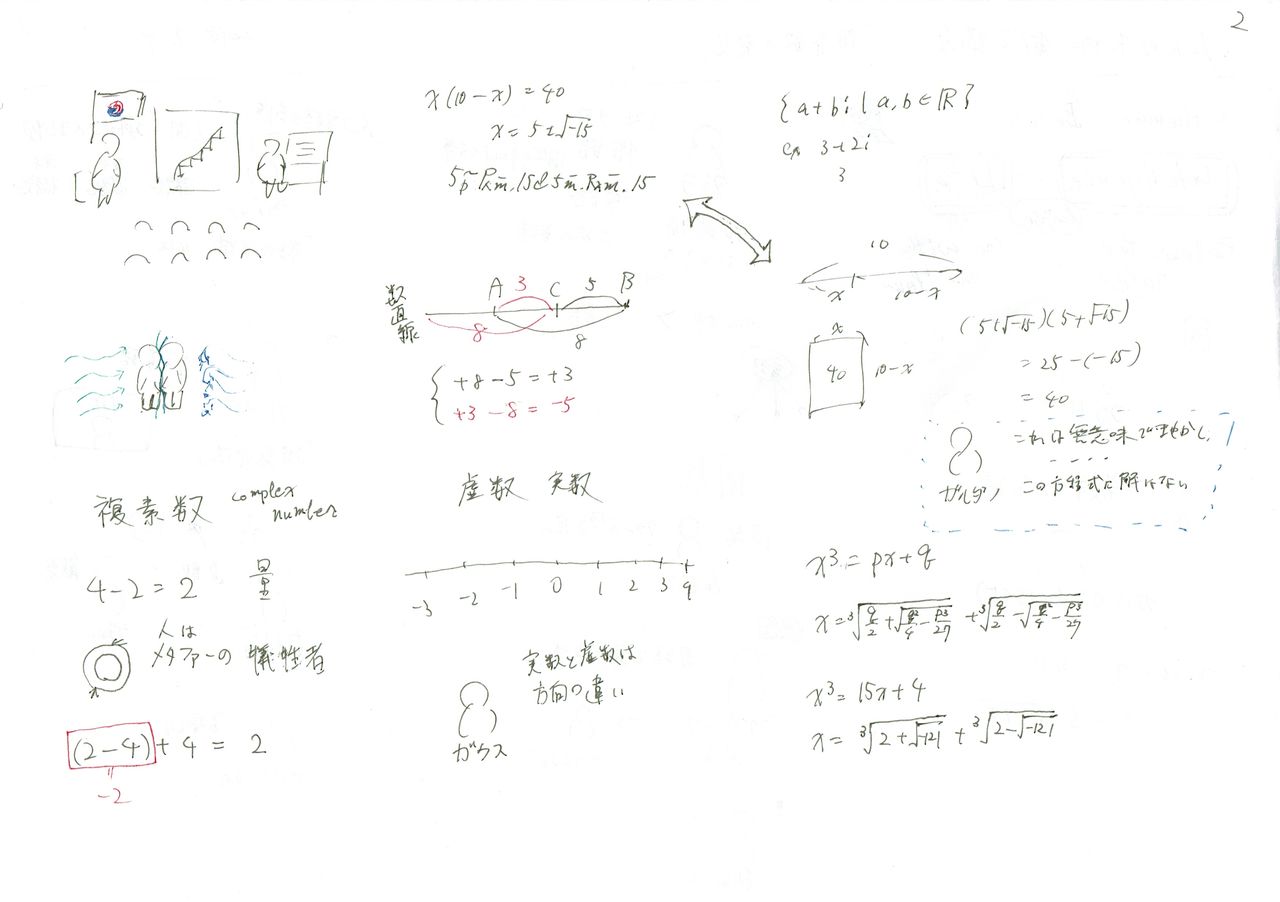 2
複素数 complex number
4-2=2 量
人は
メタファーの犠牲者
(2-4)+4=2
=
-2
x(10-x)=40
x=5±√-15
5p̃Rm̃.15
5m̃.Rm̃.15
数直線
A 3 C 5 B
8 8
+8-5=+3
+3-8=-5
虚数 実数
-3 -2 -1 0 1 2 3 4
実数と虚数は
方向の違い
ガウス
{a+bi | a,b∈ℝ}
ex 3+2i
3
10
x 10-x
x
40 10-x
(5+√-15)(5+√-15)
=25-(-15)
=40
この方程式に解はない
x³=px+q
x=³√(q/2+√(q²/4-p³/27))+³√(q/2-√(q²/4-p³/27))
x³=15x+4
x=³√(2+√-121)+³√(2-√-121)